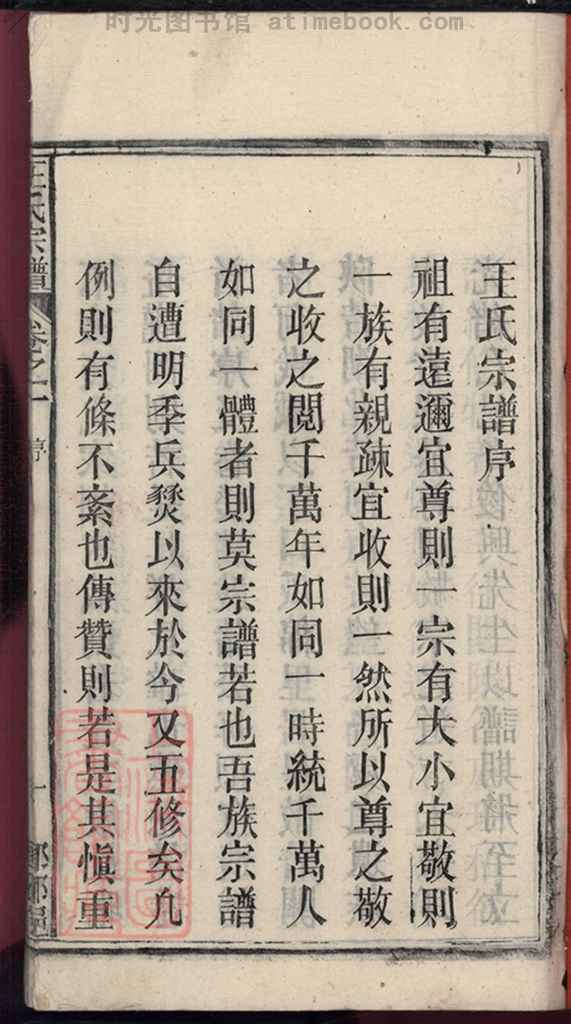 时光图书馆 atimebook.com
王氏宗譜序
祖有遠邇宜尊則一宗有大小宜敬則
一族有親疎宜收則一然所以尊之敬
之收之閱千萬年如同一時統千萬人
如同一體者則莫宗譜若也吾族宗譜
自遭明季兵燹以來於今又五修矣凡
例則有條不紊也傳贊則若是其愼重
王氏宗譜
卷之一
序
一